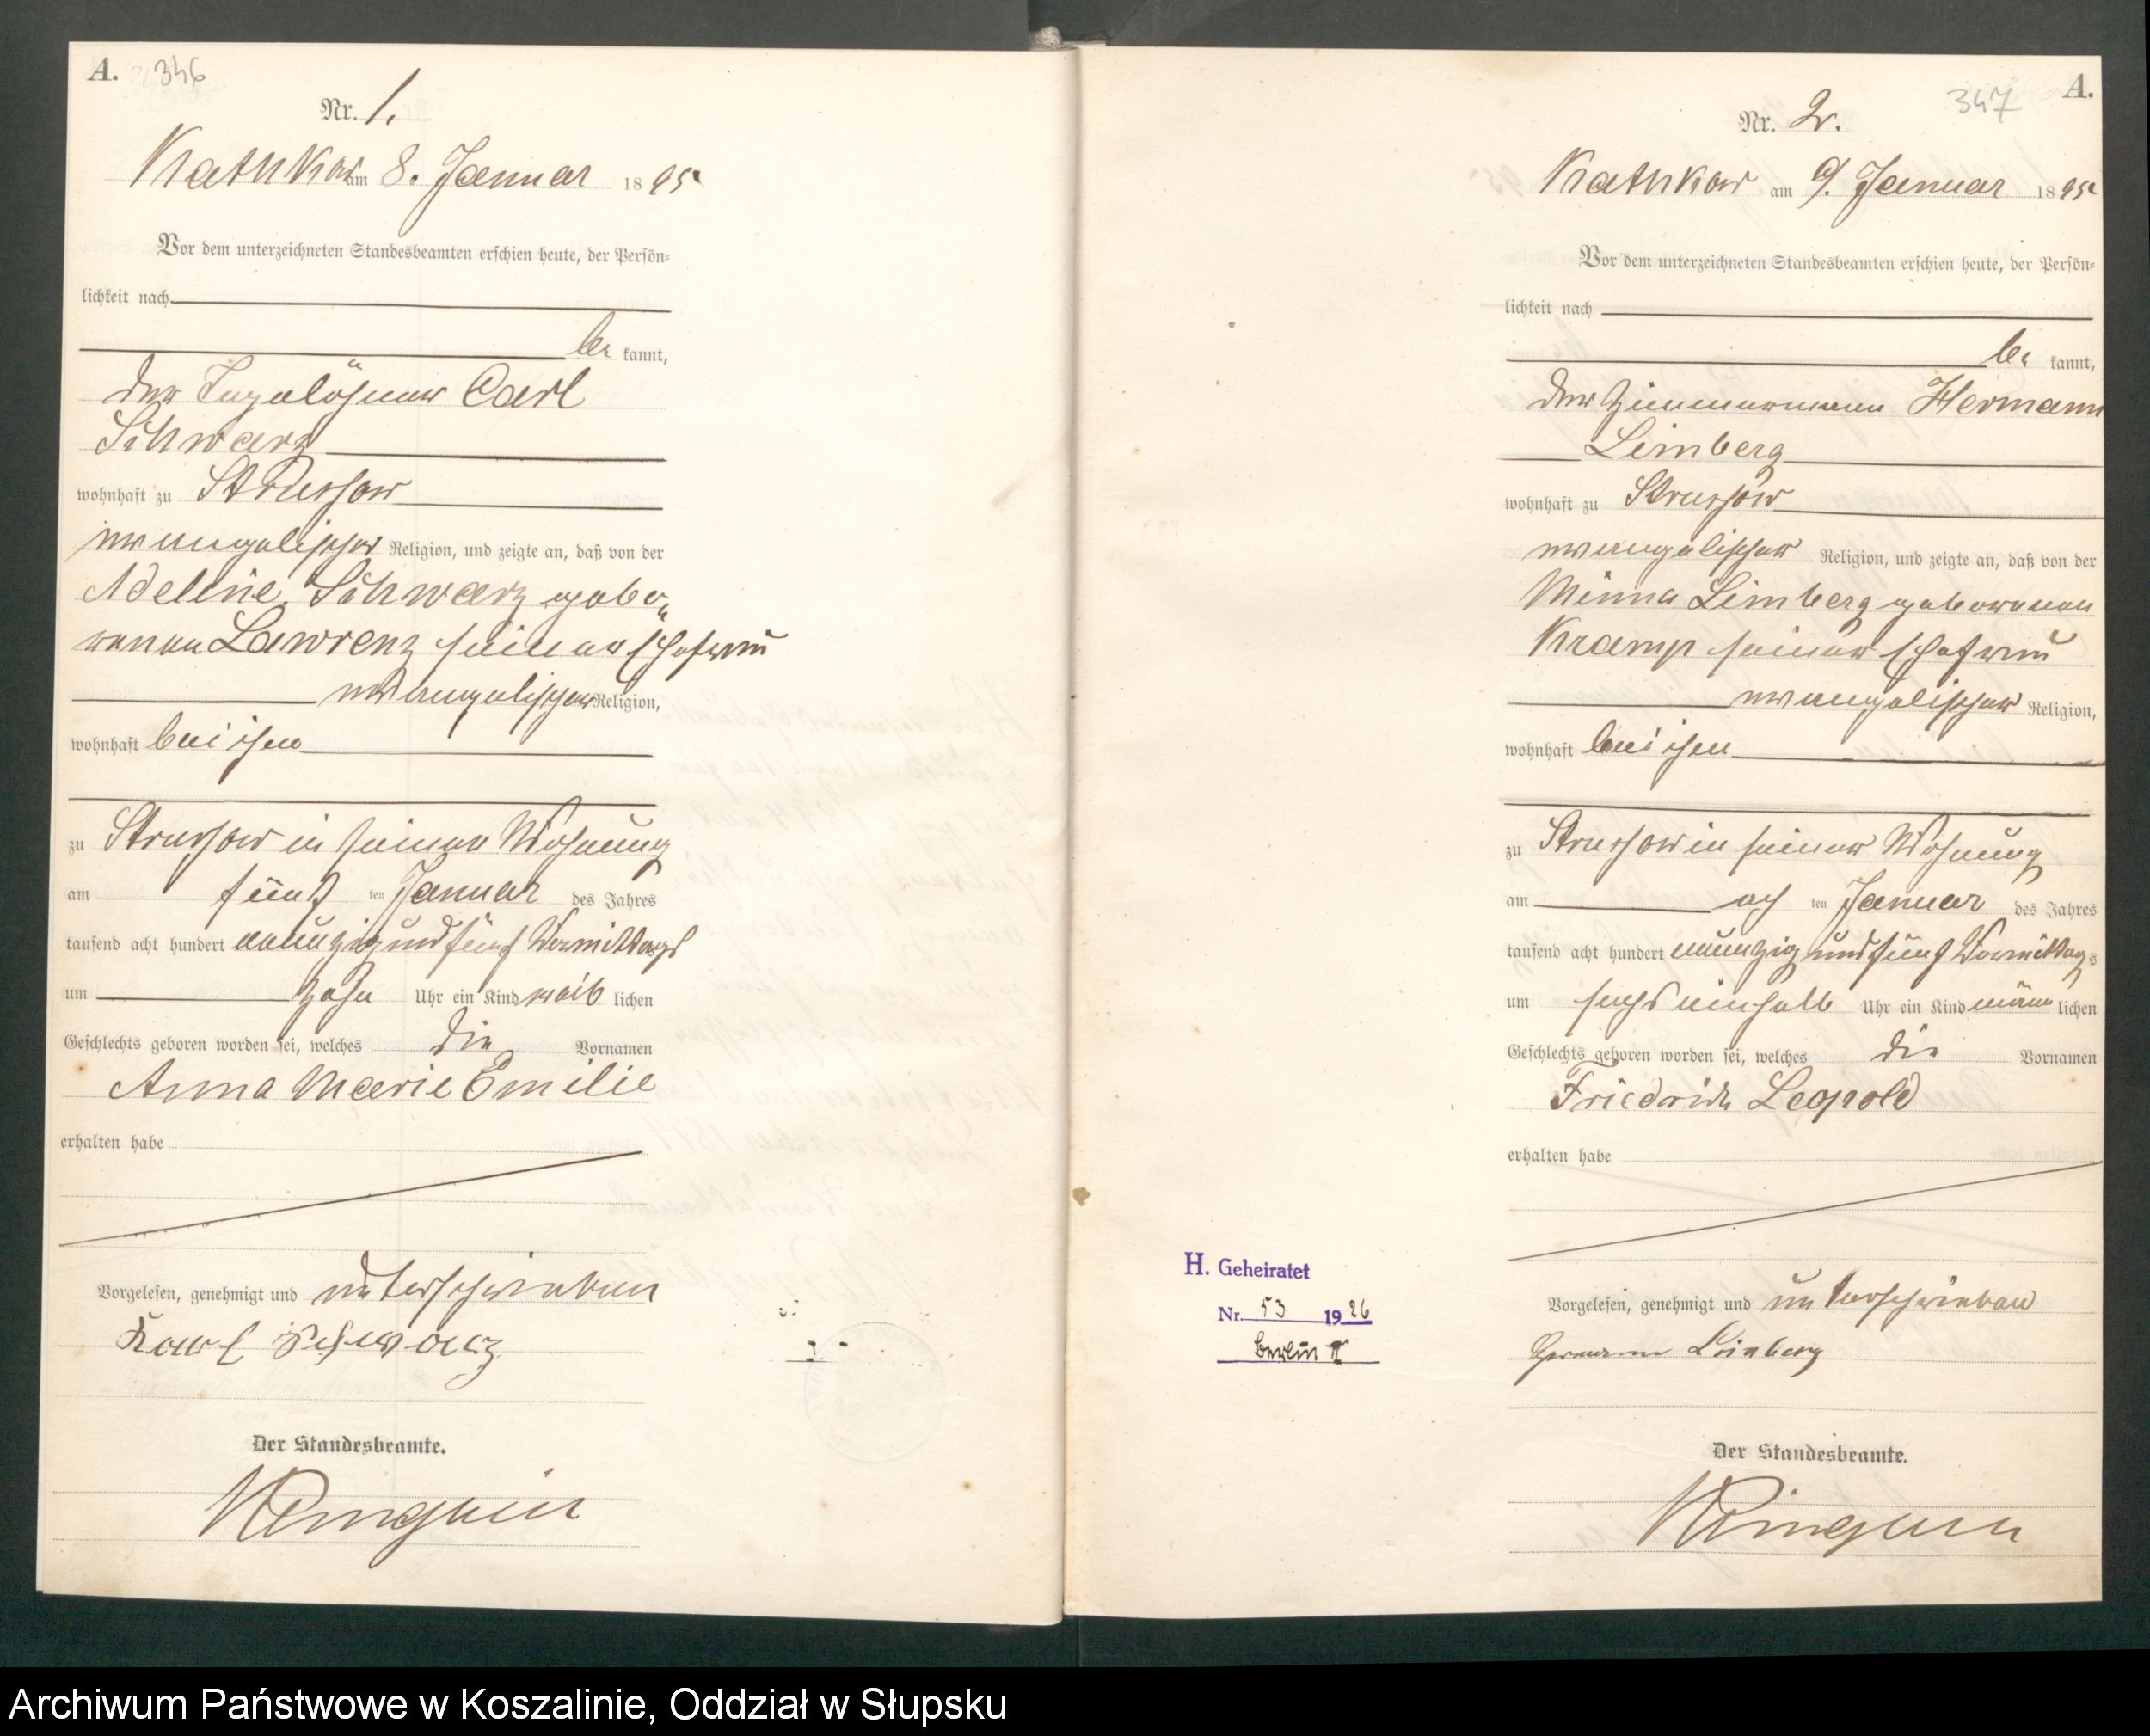 A. 346
Nr. 1.
Kathkow am 8. Januar 1895
Vor dem unterzeichneten Standesbeamten erschien heute, der Persön-
lichkeit nach
be kannt,
der Tagelöhner Carl
Schwarz
wohnhaft zu Strussow
evangelischer Religion, und zeigte an, daß von der
Adeline Schwarz gebo-
renen Lawrenz seiner Ehefrau
evangelischer Religion,
wohnhaft bei ihm
zu Strussow in seiner Wohnung
am fünf ten Januar des Jahres
tausend acht hundert neunzig und fünf Vormittags
um zehn Uhr ein Kind weib lichen
Geschlechts geboren worden sei, welches die Vornamen
Anna Marie Emilie
erhalten habe
Vorgelesen, genehmigt und unterschrieben
Karl Schwarz
Der Standesbeamte.
347 A.
Nr. 2.
Kathkow am 9. Januar 1895
Vor dem unterzeichneten Standesbeamten erschien heute, der Persön-
lichkeit nach
be kannt,
der Zimmermann Hermann
Limberg
wohnhaft zu Strussow
evangelischer Religion, und zeigte an, daß von der
Minna Limberg geborenen
Kramp seiner Ehefrau
evangelischer Religion,
wohnhaft bei ihm
zu Strussow in seiner Wohnung
am ach ten Januar des Jahres
tausend acht hundert neunzig und fünf Vormittags
um sechs einhalb Uhr ein Kind männ lichen
Geschlechts geboren worden sei, welches die Vornamen
Friedrich Leopold
erhalten habe
H. Geheiratet
Nr. 53 1926
Berlin II
Vorgelesen, genehmigt und unterschrieben
Hermann Limberg
Der Standesbeamte.
Archiwum Państwowe w Koszalinie, Oddział w Słupsku